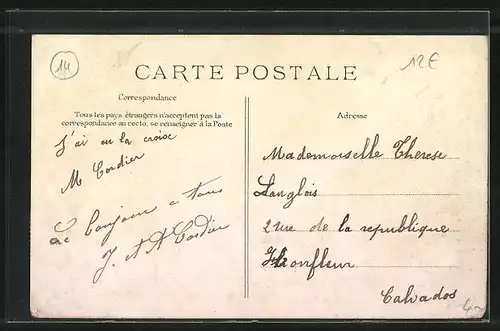 14
12€
CARTE POSTALE
Correspondance
Tous les pays étrangers n'acceptent pas la
correspondance au recto, se renseigner à la Poste
Adresse
J'ai eu la croix
M Cordier
Le bonjour a tous
J. et A Cordier
Mademoiselle Therese
Langlois
2 rue de la republique
Honfleur
Calvados